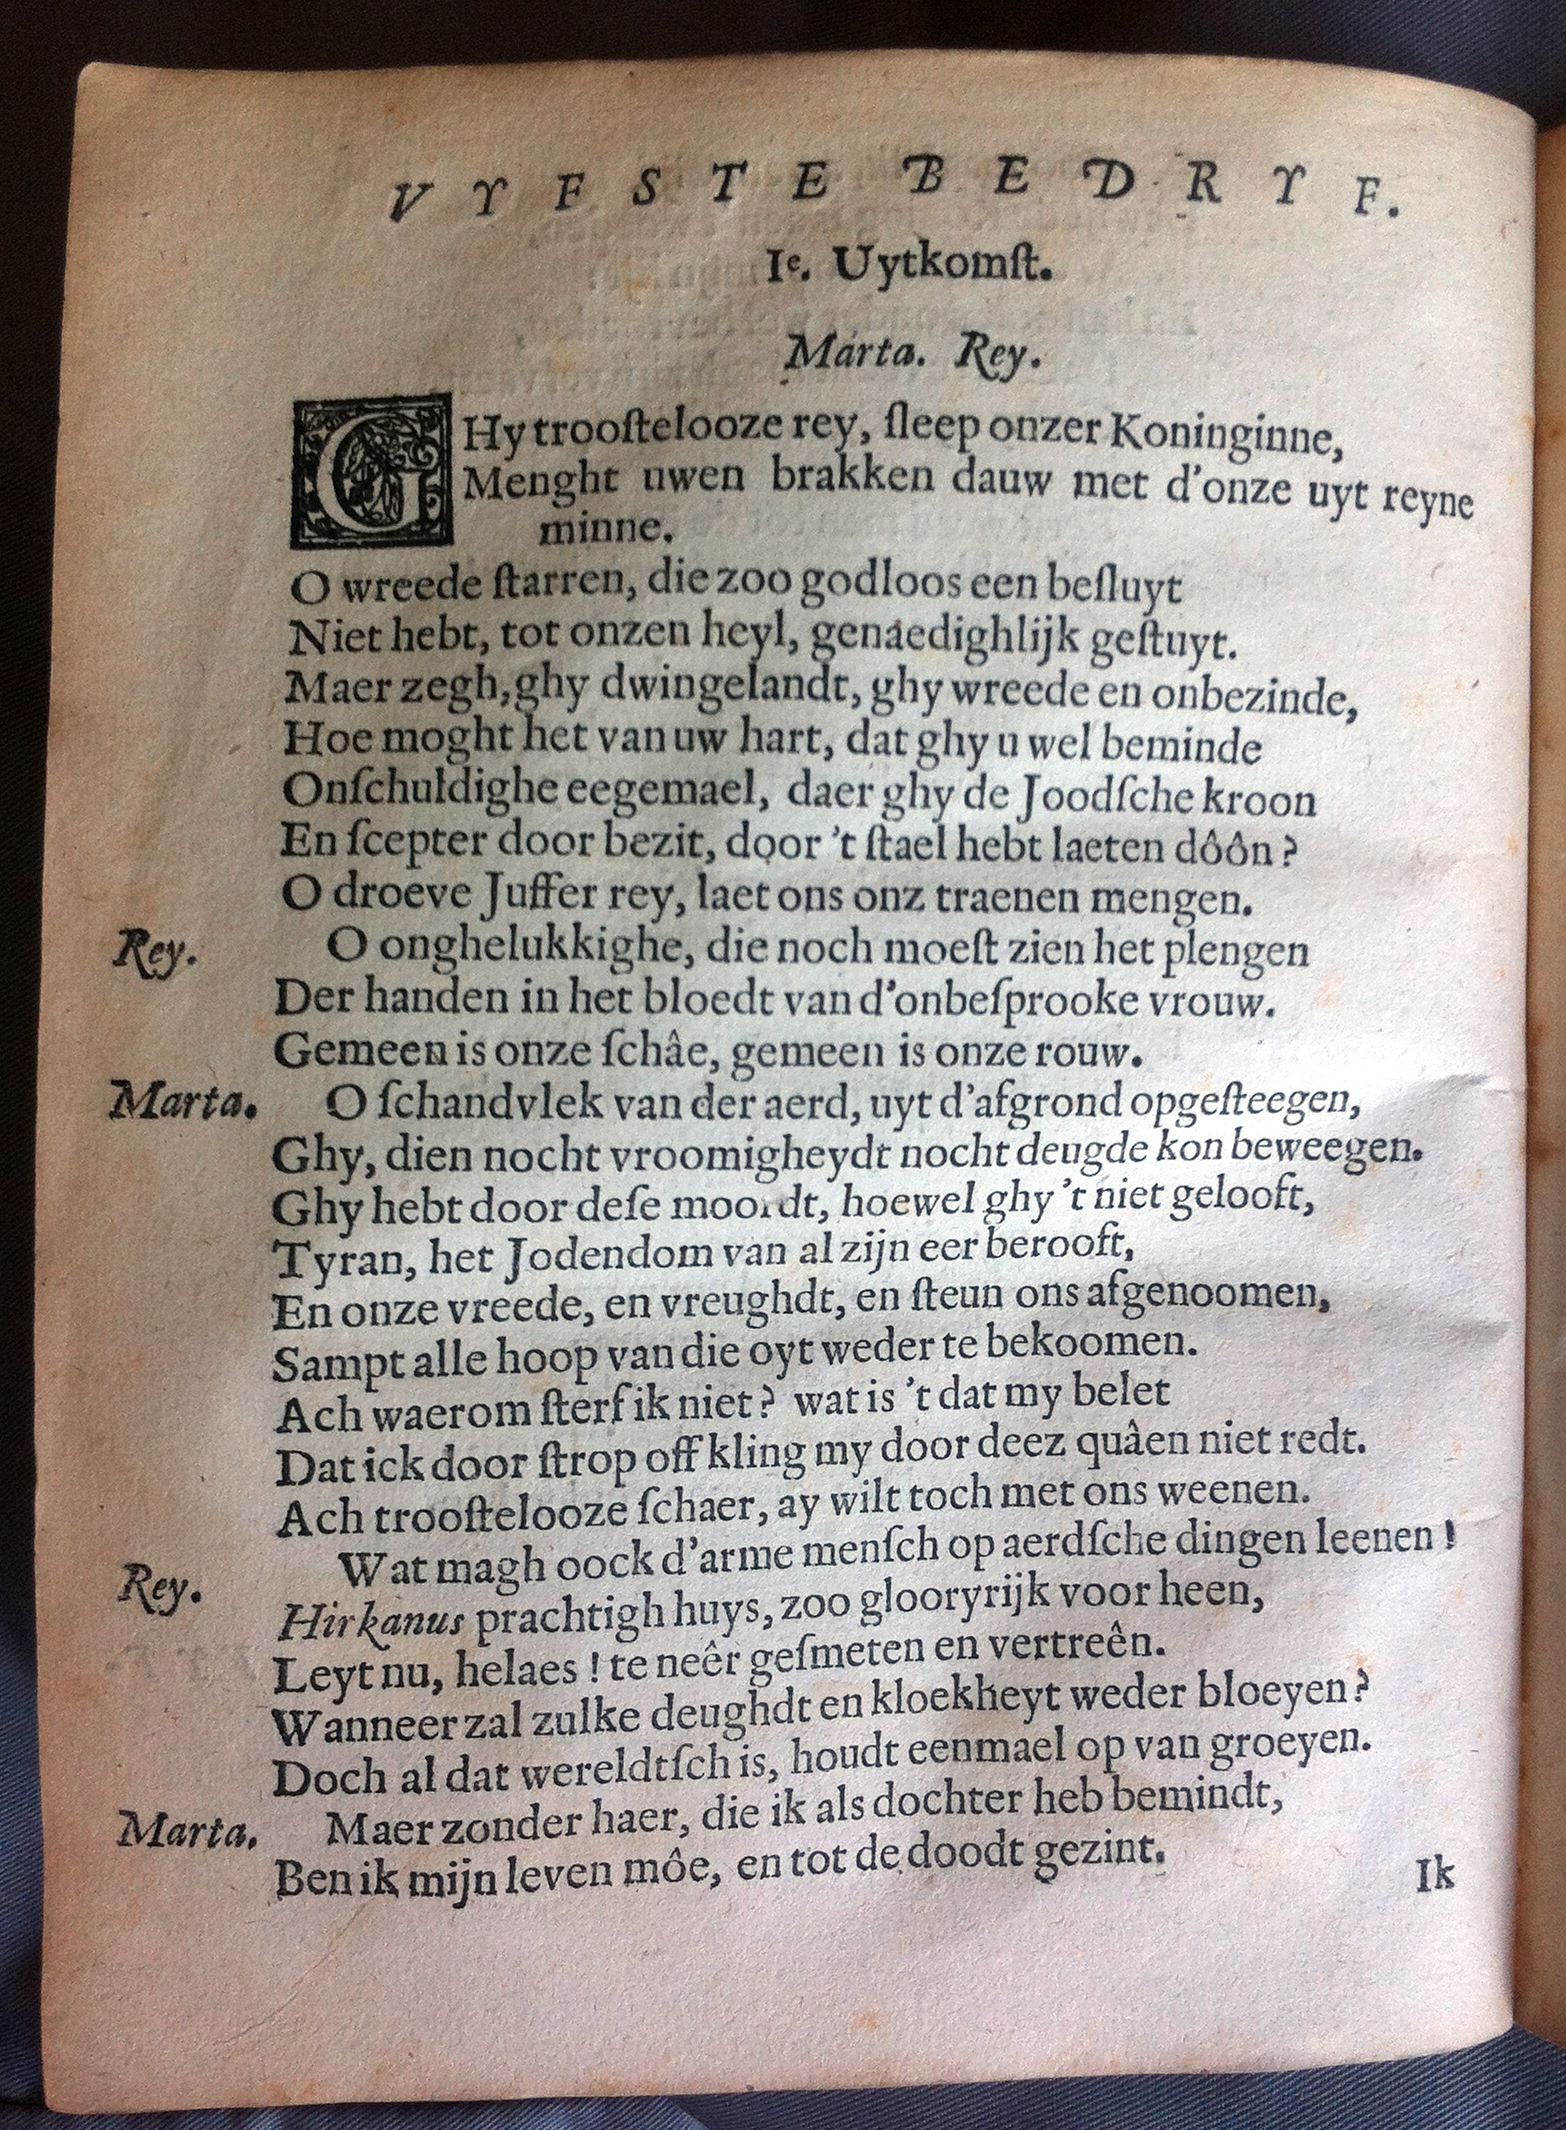 VYFSTE BEDRYF.
Ie. Uytkomſt.
Marta. Rey.
GHy trooſtelooze rey, ſleep onzer Koninginne,
Menght uwen brakken dauw met d'onze uyt reyne
minne.
O wreede ſtarren, die zoo godloos een beſluyt
Niet hebt, tot onzen heyl, genaedighlijk geſtuyt.
Maer zegh, ghy dwingelandt, ghy wreede en onbezinde,
Hoe moght het van uw hart, dat ghy u wel beminde
Onſchuldighe eegemael, daer ghy de Joodſche kroon
En ſcepter door bezit, door 't ſtael hebt laeten dôôn?
O droeve Juffer rey, laet ons onz traenen mengen.
Rey. O onghelukkighe, die noch moeſt zien het plengen
Der handen in het bloedt van d'onbeſprooke vrouw.
Gemeen is onze ſchâe, gemeen is onze rouw.
Marta. O ſchandvlek van der aerd, uyt d'afgrond opgeſteegen,
Ghy, dien nocht vroomigheydt nocht deugde kon beweegen.
Ghy hebt door deſe moordt, hoewel ghy 't niet gelooft,
Tyran, het Jodendom van al zijn eer berooft,
En onze vreede, en vreughdt, en ſteun ons afgenoomen,
Sampt alle hoop van die oyt weder te bekoomen.
Ach waerom ſterf ik niet? wat is 't dat my belet
Dat ick door ſtrop off kling my door deez quâen niet redt.
Ach trooſtelooze ſchaer, ay wilt toch met ons weenen.
Rey. Wat magh oock d'arme menſch op aerdſche dingen leenen!
Hirkanus prachtigh huys, zoo glooryrijk voor heen,
Leyt nu, helaes! te neêr geſmeten en vertreên.
Wanneer zal zulke deughdt en kloekheyt weder bloeyen?
Doch al dat wereldtſch is, houdt eenmael op van groeyen.
Marta. Maer zonder haer, die ik als dochter heb bemindt,
Ben ik mijn leven môe, en tot de doodt gezint.
Ik